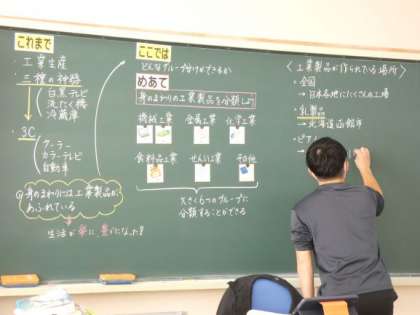 これまで
・工業生産
・三種の神器
白黒テレビ
洗たく機
冷蔵庫
・3C
クーラー
カラーテレビ
自動車
身のまわりには工業製品が
あふれている
生活が楽に豊かになった!!
ここでは
どんなグループ分けができるか
めあて
身のまわりの工業製品を分類しよう
機械工業
金属工業
化学工業
食料品工業
せんい工業
その他
大きく6つのグループに
分類することができる
〈工業製品が作られている場所〉
・全国
→日本各地にたくさんの工場
・乳製品
→北海道函館市
・ピア